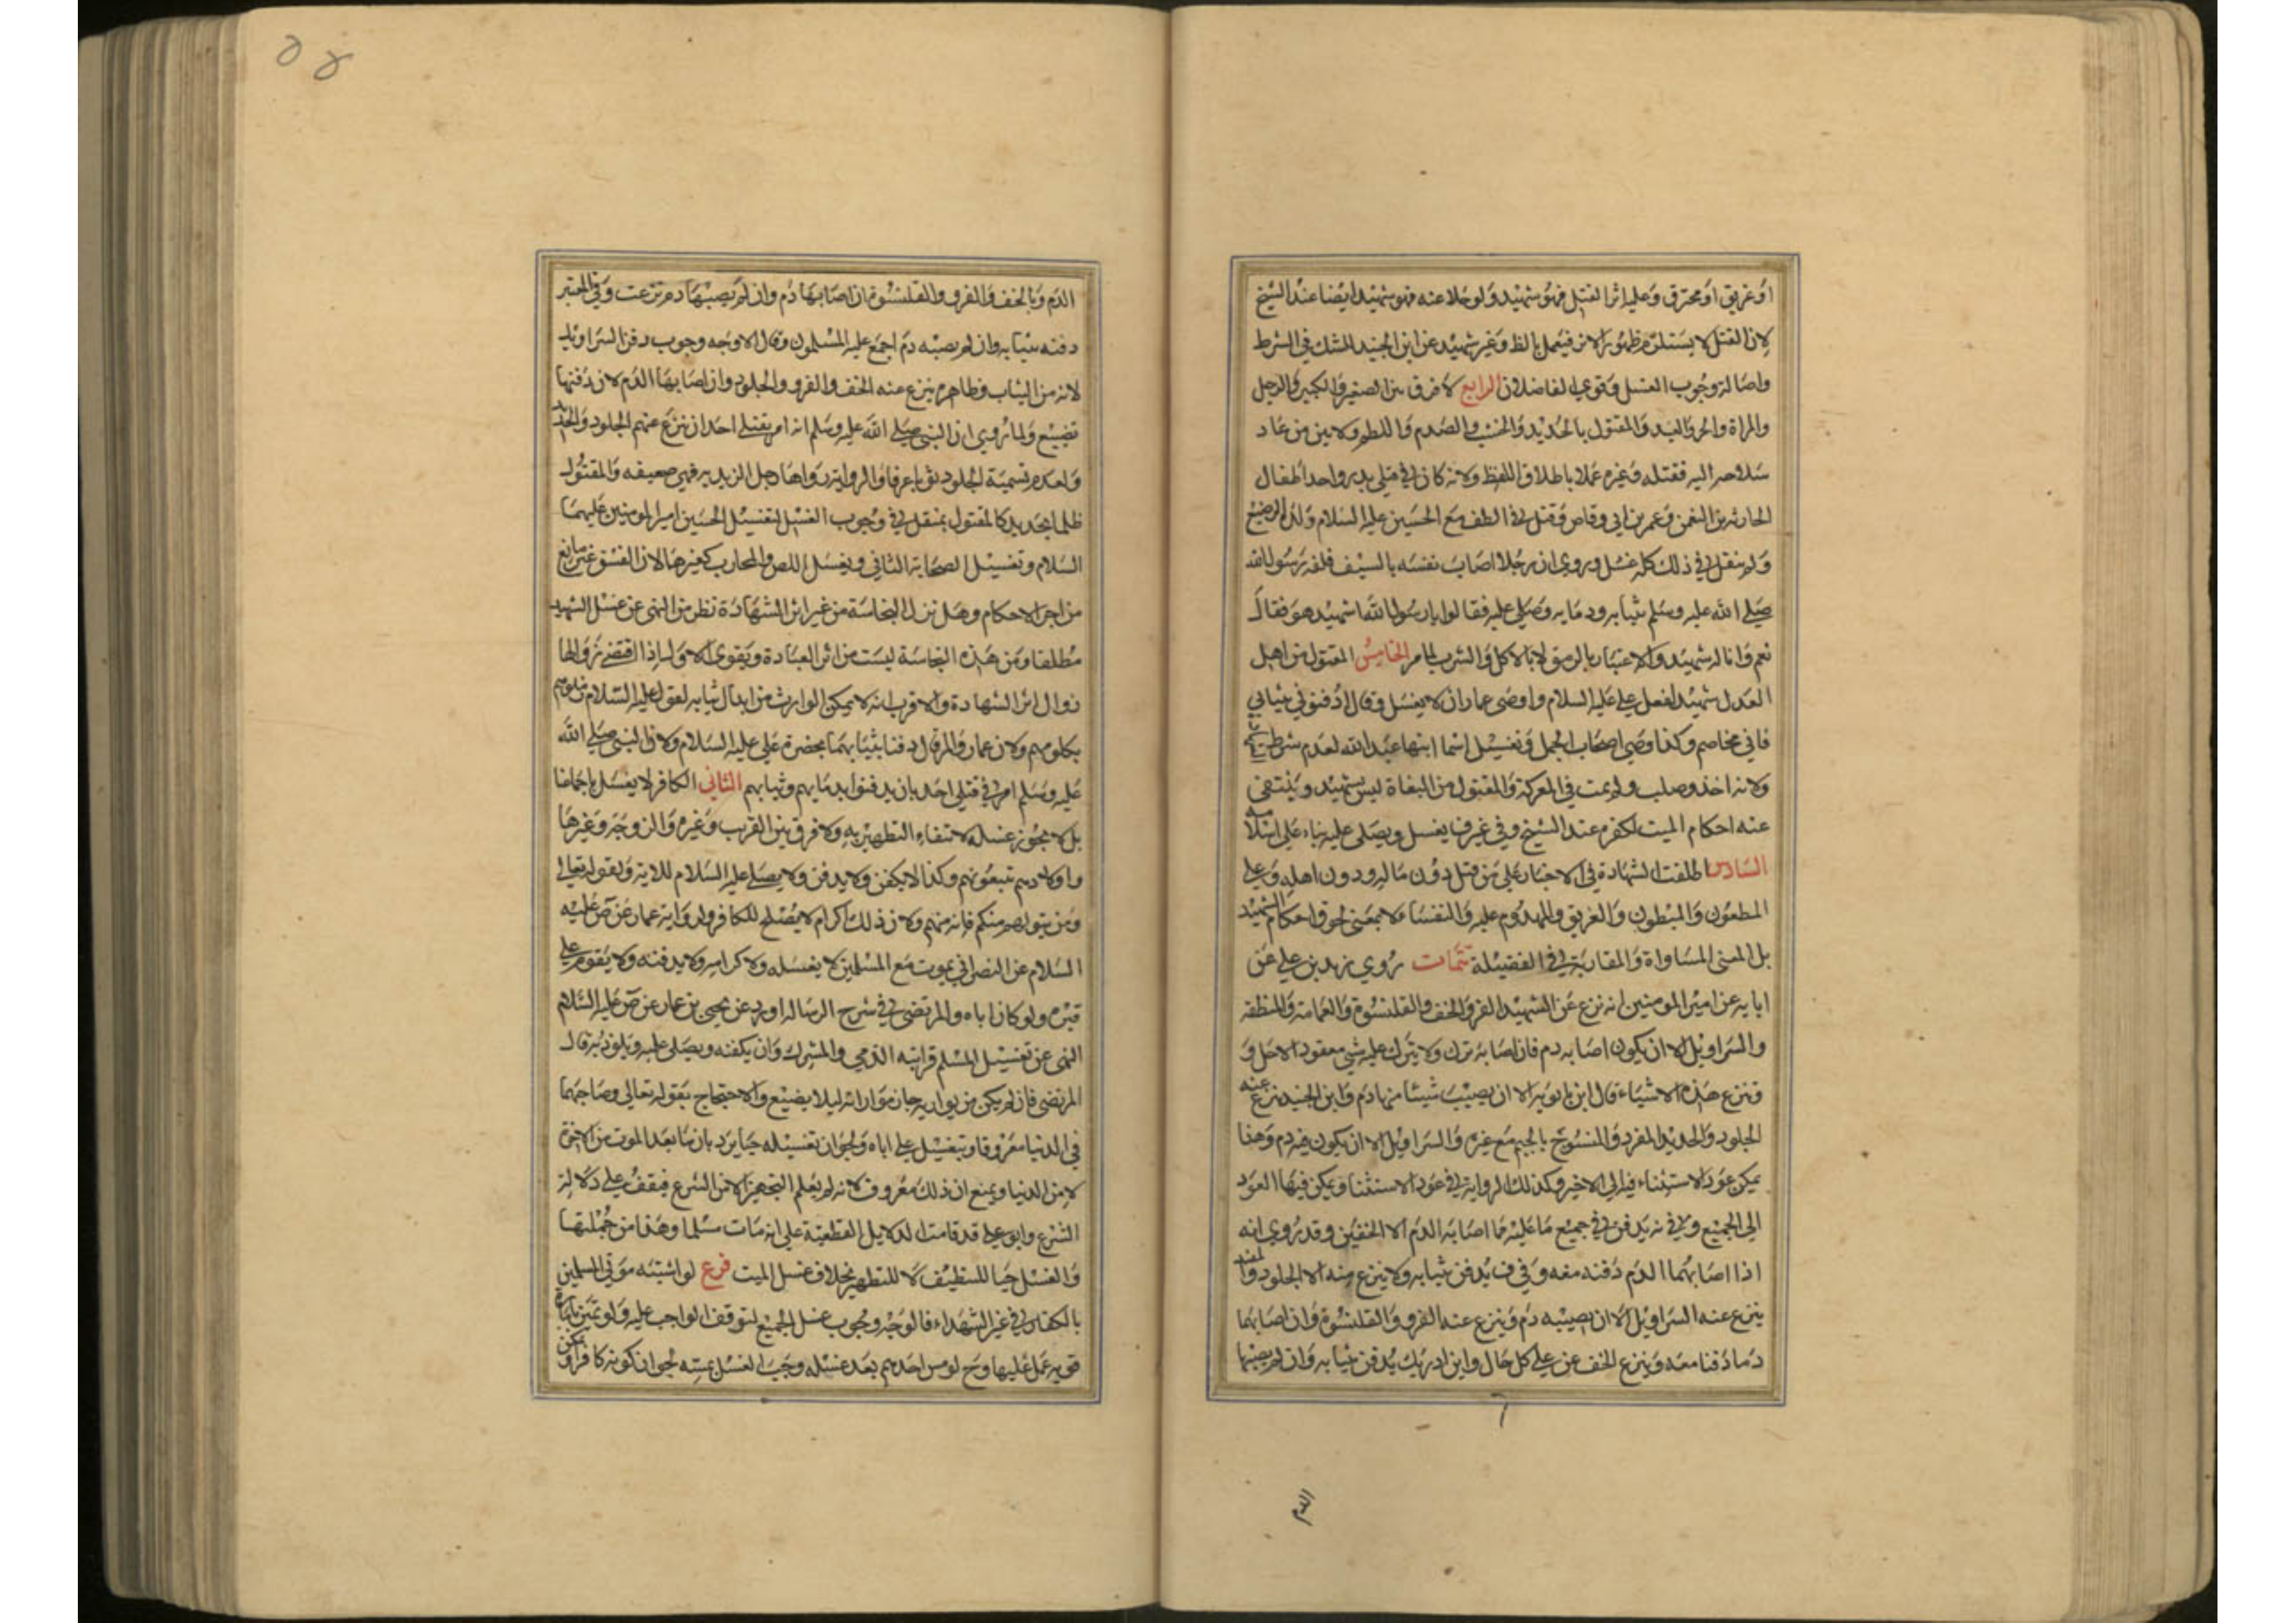 او غريق او محترق وعليه اثر القتل فهو شهيد ولو خلا عنه فهو شهيد ايضا عند الشيخ
لان القتل لا يستلزم ظهور الاثر فيعمل بالظ وغير شهيد عن ابن الجنيد للشك في الشرط
واصالة وجوب الغسل وقوي الفاضلان الرابع لا فرق بين الصغير والكبير والرجل
والمراة والحر والعبد والمقتول بالحديد والخشب والصدم واللطم ولا بين من عاد
سلاحه اليه فقتله وغيره عملا باطلاق اللفظ ولانه كان في قتلى بدر واحد اطفال
الحارثة بن النعمن وعمر بن ابي وقاص وقتل في الطف مع الحسين عليه السلام ولده الرضيع
ولم ينقل في ذلك كله غسل وروي ان رجلا اصاب نفسه بالسيف فلفه رسول الله
صلى الله عليه وسلم بثيابه ودمايه وصلى عليه فقالوا يا رسول الله اشهيد هو فقال
نعم وانا له شهيد والاعتبار بالرمق لا بالاكل والشرب لما مر الخامس المقتول من اهل
العدل شهيد لفعل علي عليه السلام واوصى عمار ان لا يغسل وقال ادفنوني في ثيابي
فاني مخاصم وكذا وصى اصحاب الجمل وتغسيل اسما ابنها عبد الله لعدم شرط
ولانه اخذ وصلب ولم يمت في المعركة والمقتول من البغاة ليس بشهيد وينتفي
عنه احكام الميت لكفره عند الشيخ وفي غيرف يغسل ويصلى عليه بناء على اسلامه
السادس اطلقت الشهادة في الاخبار على من قتل دون ماله ودون اهله وعلى
المطعون والمبطون والغريق والمهدوم عليه والنفسا لا بمعنى لحوق احكام الشهيد
بل المعنى المساواة والمقاربة في الفضيلة تتمات روي زيد بن علي عن
ابايه عن امير المومنين انه نزع عن الشهيد الفرو الخف والقلنسوة والعمامة والمنطقة
والسراويل الا ان يكون اصابه دم فان اصابه ترك ولا يترك عليه شي معقود الا حل و
وتنزع هذه الاشياء قال ابن بابويه الا ان يصيب شيئا منها دم وابن الجنيد نزع عنه
الجلود والحديد المفرد والمنسوج بالجيم مع غيره والسراويل الا ان يكون فيه دم وهذا
يمكن عود الاستثناء فيه الى الاخير وكذلك الرواية في عود الاستثنا ويمكن فيها العود
الى الجميع وفي نه يدفن في جميع ما عليه مما اصابه الدم الا الخفين وقد روي انه
اذا اصابهما الدم دفنه معه وفي ف يدفن ثيابه ولا ينزع منه الا الجلود والمفيد
ينزع عنه السراويل الا ان يصيبه دم وينزع عنه الفرو والقلنسوة وان اصابهما
دما دفنا معه وينزع الخف عنه على كل حال وابن ادريس يدفن ثيابه وان لم يصبها
الدم
الدم وبالخف والفرو والقلنسوة ان اصابها دم وان لم يصبها دم نزعت وفي المعتبر
دفنه بثيابه وان لم يصبه دم اجمع عليه المسلمون وقال الاوجه وجوب دفن السراويل
لانه من الثياب وظاهره ينزع عنه الخف والفرو والجلود وان اصابها الدم لان دفنها
تضييع ولما روي ان النبي صلى الله عليه وسلم انه امر بقتلى احد ان ينزع عنهم الجلود والحديد
ولعدم تسمية الجلود ثوبا عرفا والرواية رواها رجال الزيديه فهي ضعيفه والمقتول
ظلما بحديد كالمقتول بمثقل في وجوب الغسل لتغسيل الحسين امير المومنين عليهما
السلام وتغسيل الصحابة الثاني ويغسل اللص والمحارب كغيرها لان الفسق غير مانع
من اجراء الاحكام وهل تزال النجاسة من غير اثر الشهادة نظر من النهي عن غسل الشهيد
مطلقا ومن هذه النجاسة ليست من اثر العبادة ويقوى الاول اذا اقتضى زوالها
زوال اثر الشهادة والاقرب انه لا يمكن الوارث من ابدال ثيابه لقوله عليه السلام زملوهم
بكلومهم ولان عمار والمرقال دفنا بثيابهما بحضرة علي عليه السلام ولان النبي صلى الله
عليه وسلم امر في قتلى احد بان يدفنوا بدمايهم وثيابهم الثاني الكافر لا يغسل باجماعنا
بل لا يجوز غسله لانتفاء التطهير به ولا فرق بين القريب وغيره والزوجة وغيرها
واولادهم تبعونهم وكذا لا يكفن ولا يدفن ولا يصلى عليه السلام للاية ولقوله تعالى
ومن يتولهم منكم فانه منهم ولان ذلك اكرام لا يصلح للكافر ولرواية عمار عن ص عليه
السلام عن النصراني يموت مع المسلمين لا يغسله ولا كرامه ولا يدفنه ولا يقوم على
قبره ولو كان اباه والمرتضى في شرح الرساله اورد عن يحيى بن عمار عن ص عليه السلام
النهي عن تغسيل المسلم قرابته الذمي والمشرك وان يكفنه ويصلي عليه ويلوذ به قال
المرتضى فان لم يكن من يواريه جاز مواراته ليلا يضيع والاحتجاج بقوله تعالى وصاحبهما
في الدنيا معروفا وبتغسيل علي اباه ولجواز تغسيله حيا يرد بان ما بعد الموت من الاخرة
لا من الدنيا ويمنع ان ذلك معروف لانه لم يعلم التجهيز الا من الشرع فيقف على دلالة
الشرع وابو علي قد قامت الدلايل القطعية على انه مات مسلما وهذا من جملتها
والغسل حيا للتنظيف لا للتطهير بخلاف غسل الميت فرع لو اشتبه موتى المسلمين
بالكفار في غير الشهداء فالوجه وجوب غسل الجميع لتوقف الواجب عليه ولو تميز بامارة
قويه عمل عليها وح لو مس احدهم بعد غسله وجب الغسل بمسه لجواز كونه كافرا